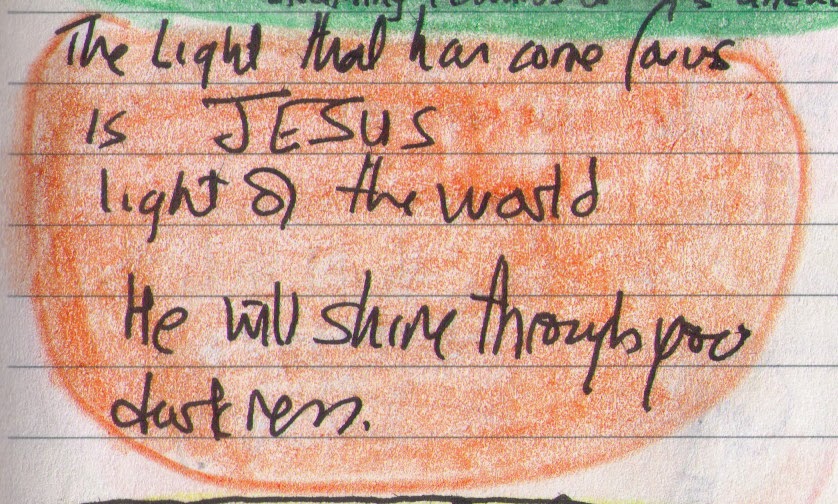 The Light that has come for us
is JESUS
light of the world
He will shine through your
darkness.